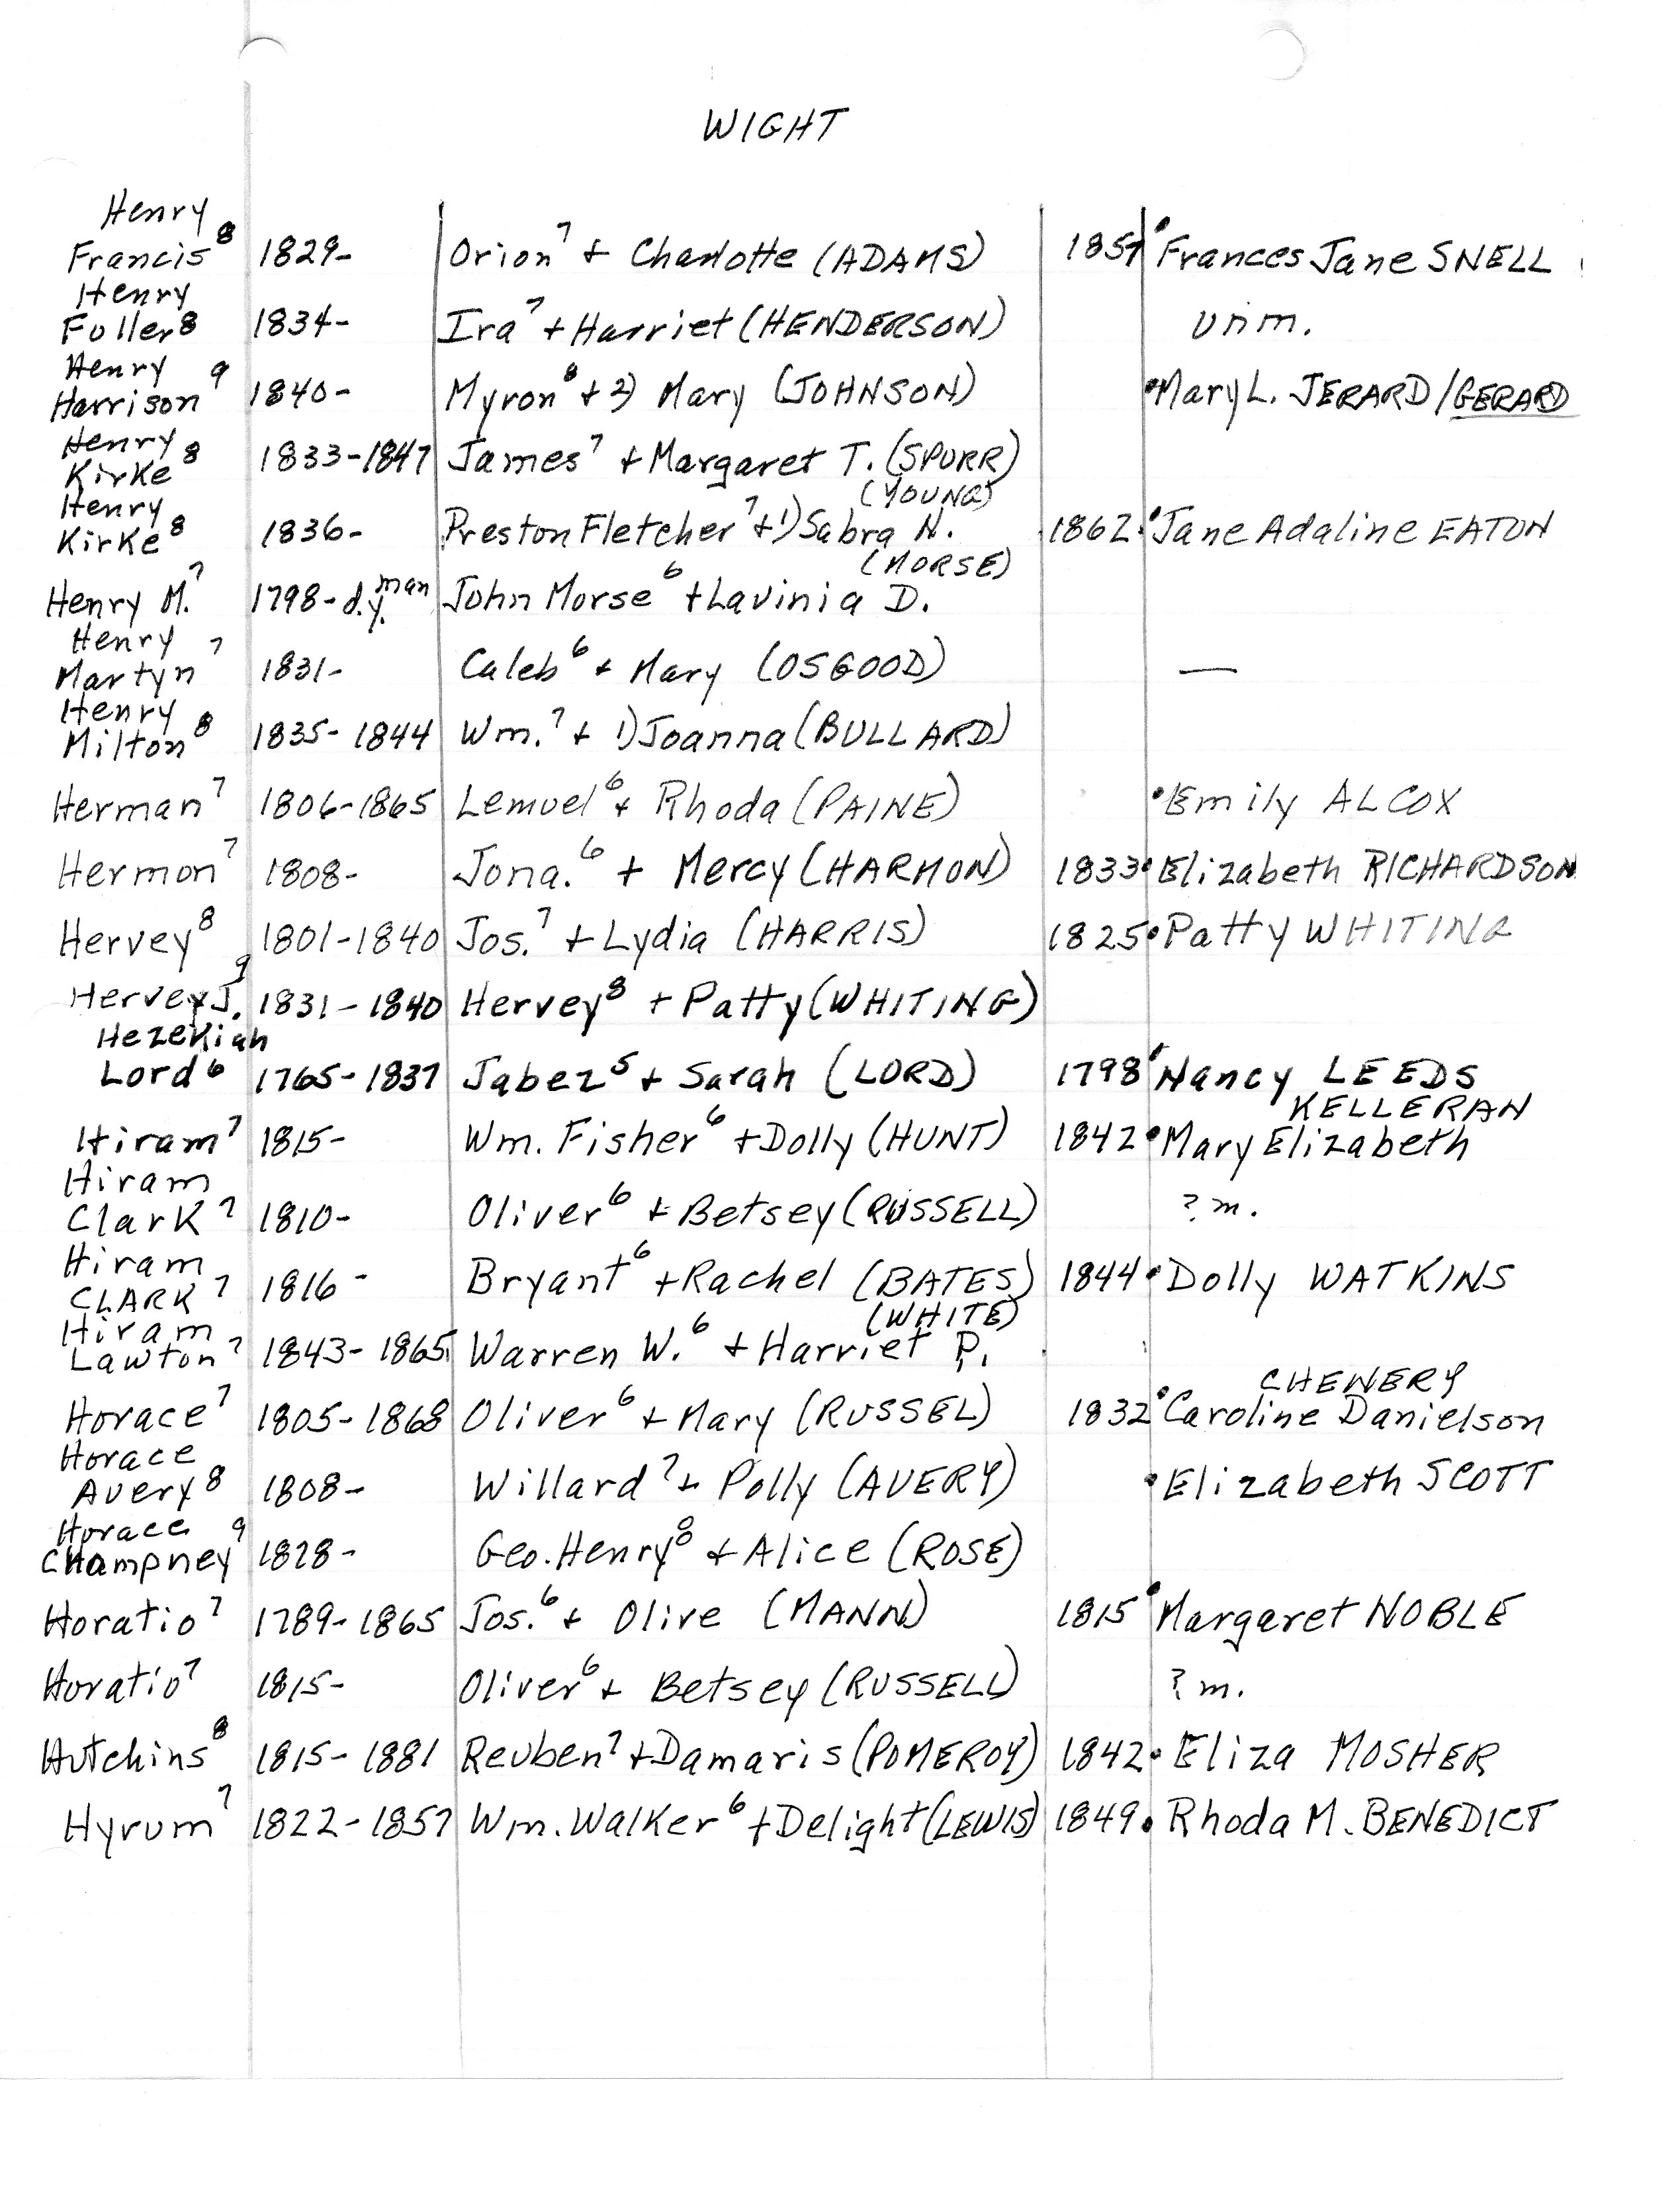 WIGHT
Henry
Francis⁸ 1829- Orion⁷ + Charlotte (ADAMS) 1857 Frances Jane SNELL
Henry
Fuller⁸ 1834- Ira⁷ + Harriet (HENDERSON) unm.
Henry
Harrison⁹ 1840- Myron⁸ + 2) Mary (JOHNSON) Mary L. JERARD/GERARD
Henry
Kirke⁸ 1833-1847 James⁷ + Margaret T. (SPURR)
Henry (YOUNG)
Kirke⁸ 1836- Preston Fletcher⁷ + 1) Sabra N. 1862 Jane Adaline EATON
(MORSE)
Henry M.⁷ 1798- d.y. man John Morse⁶ + Lavinia D.
Henry
Martyn⁷ 1831- Caleb⁶ + Mary (OSGOOD) —
Henry
Milton⁸ 1835-1844 Wm.⁷ + 1) Joanna (BULLARD)
Herman⁷ 1806-1865 Lemuel⁶ + Rhoda (PAINE) Emily ALCOX
Hermon⁷ 1808- Jona.⁶ + Mercy (HARMON) 1833 Elizabeth RICHARDSON
Hervey⁸ 1801-1840 Jos.⁷ + Lydia (HARRIS) 1825 Patty WHITING
Hervey J.⁹ 1831-1840 Hervey⁸ + Patty (WHITING)
Hezekiah
Lord⁶ 1765-1837 Jabez⁵ + Sarah (LORD) 1798 Nancy LEEDS
KELLERAN
Hiram⁷ 1815- Wm. Fisher⁶ + Dolly (HUNT) 1842 Mary Elizabeth
Hiram
Clark⁷ 1810- Oliver⁶ + Betsey (RUSSELL) ? m.
Hiram
CLARK⁷ 1816- Bryant⁶ + Rachel (BATES) 1844 Dolly WATKINS
Hiram (WHITE)
Lawton⁷ 1843-1865 Warren W.⁶ + Harriet P.
CHENERY
Horace⁷ 1805-1868 Oliver⁶ + Mary (RUSSEL) 1832 Caroline Danielson
Horace
Avery⁸ 1808- Willard⁷ + Polly (AVERY) Elizabeth SCOTT
Horace
Champney⁹ 1828- Geo. Henry⁸ + Alice (ROSE)
Horatio⁷ 1789-1865 Jos.⁶ + Olive (MANN) 1815 Margaret NOBLE
Horatio⁷ 1815- Oliver⁶ + Betsey (RUSSELL) ? m.
Hutchins⁸ 1815-1881 Reuben⁷ + Damaris (POMEROY) 1842 Eliza MOSHER
Hyrum⁷ 1822-1857 Wm. Walker⁶ + Delight (LEWIS) 1849 Rhoda M. BENEDICT